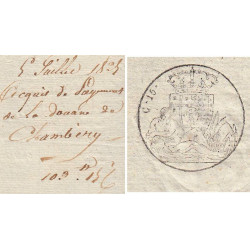 5 Juillet 1825
Acquis de Payement
de la douane de
Chambéry
C. 15.